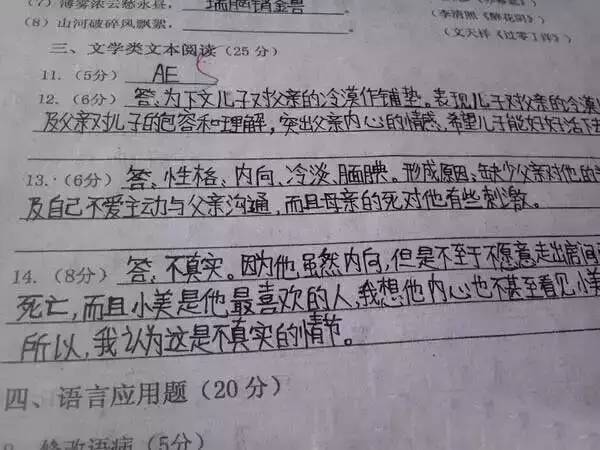 (7) 薄雾浓云愁永昼，瑞脑销金兽
(李清照《醉花阴》)
(8) 山河破碎风飘絮，
(文天祥《过零丁洋》)
三、文学类文本阅读(25分)
11.(5分) AE
12.(6分) 答:为下文儿子对父亲的冷漠作铺垫。表现儿子对父亲的冷漠
及父亲对儿子的包容和理解，突出父亲内心的情感，希望儿子能好好活下去
13.(6分) 答:性格、内向、冷淡、腼腆。形成原因:缺少父亲对他的
及自己不爱主动与父亲沟通，而且母亲的死对他有些刺激。
14.(8分) 答:不真实。因为他虽然内向，但是不至于不愿意走出房间
死亡，而且小美是他最喜欢的人，我想他内心也不甚至看见小美
所以，我认为这是不真实的情节。
四、语言应用题(20分)
修改语病(5分)